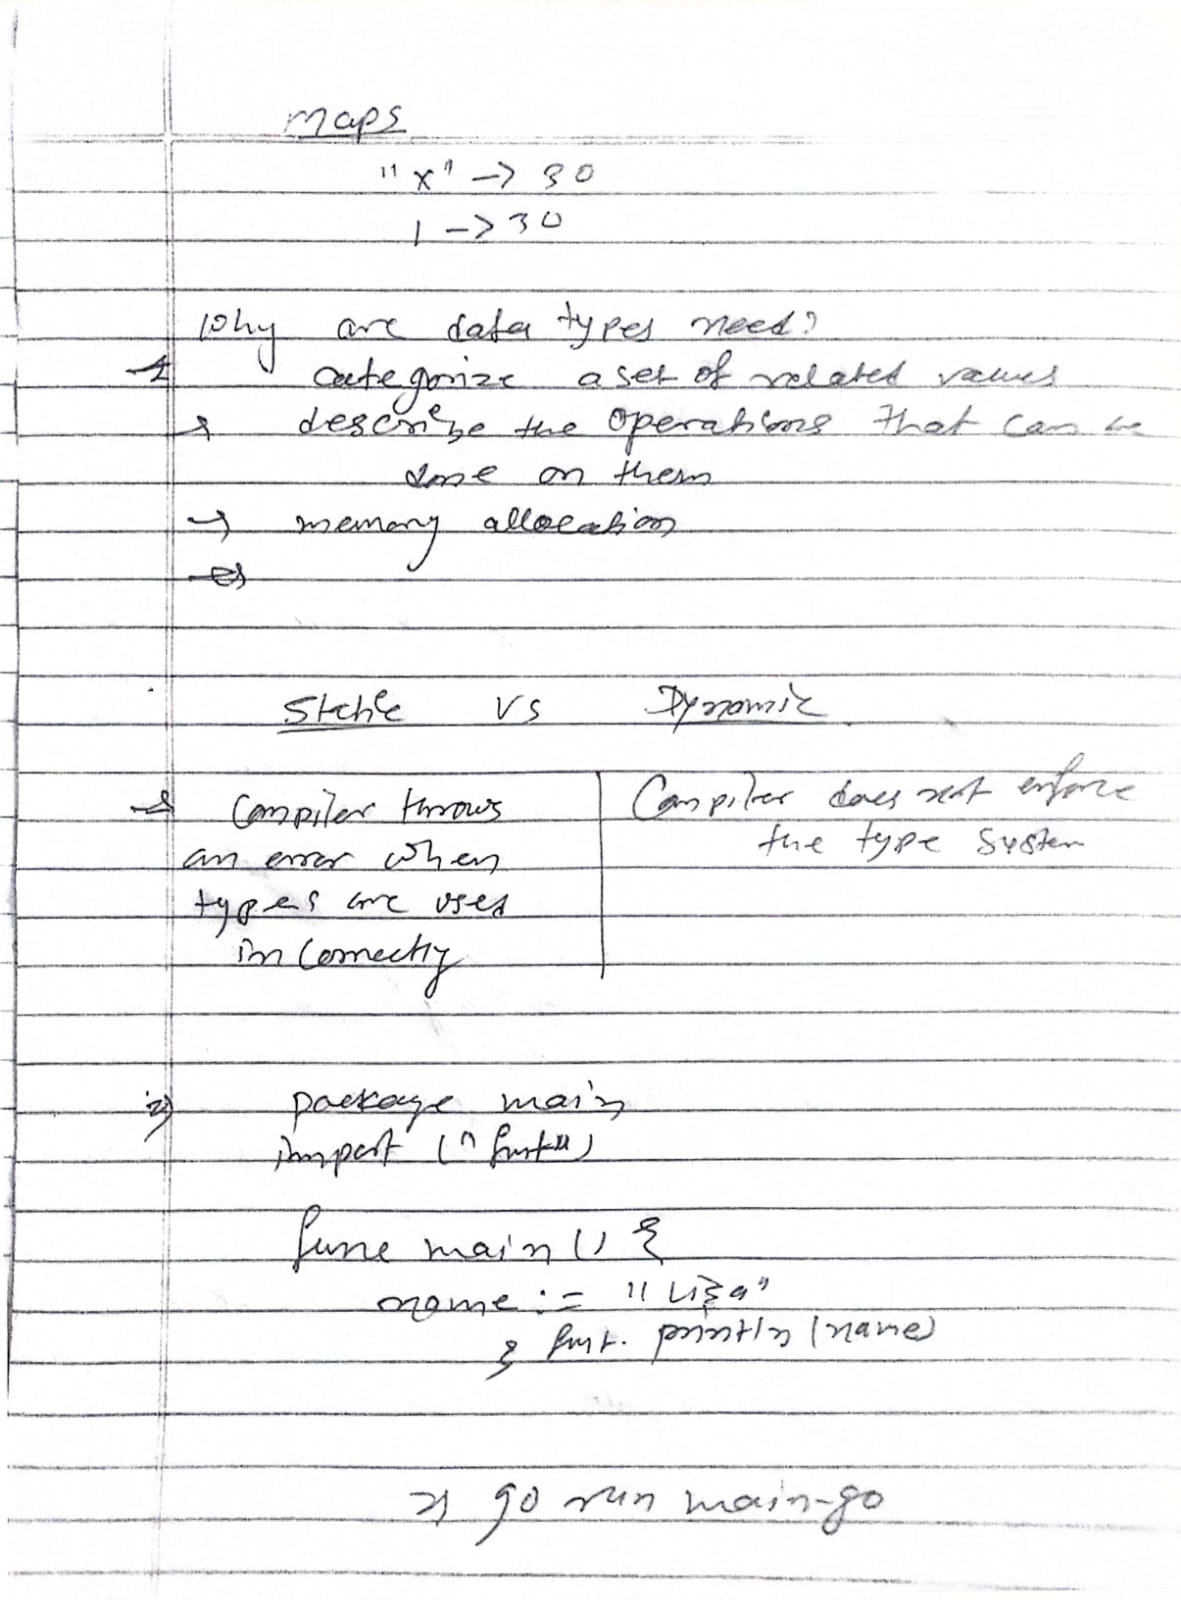 Maps
"x" -> 30
1 -> 30
Why are data types need?
-> categorize a set of related values
-> describe the operations that can be
done on them
-> memory allocation
Static vs Dynamic
-> Compiler throws
an error when
types are used
incorrectly
Compiler does not enforce
the type system
=> package main
import ("fmt")
func main () {
name := "Lisa"
} fmt. println (name)
=> go run main.go